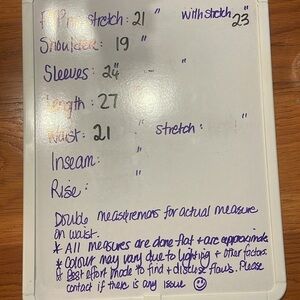 no stretch: 21" with stretch 23"
Shoulder: 19 "
Sleeves: 24" -
Length: 27 "
Waist: 21 " Stretch: "
Inseam: "
Rise:
Double measurements for actual measure
on waist.
* All measures are done flat + are approximate
* Colour may vary due to lighting + other factors
* Best effort made to find + disclose flaws. Please
contact if there is any issue ☺